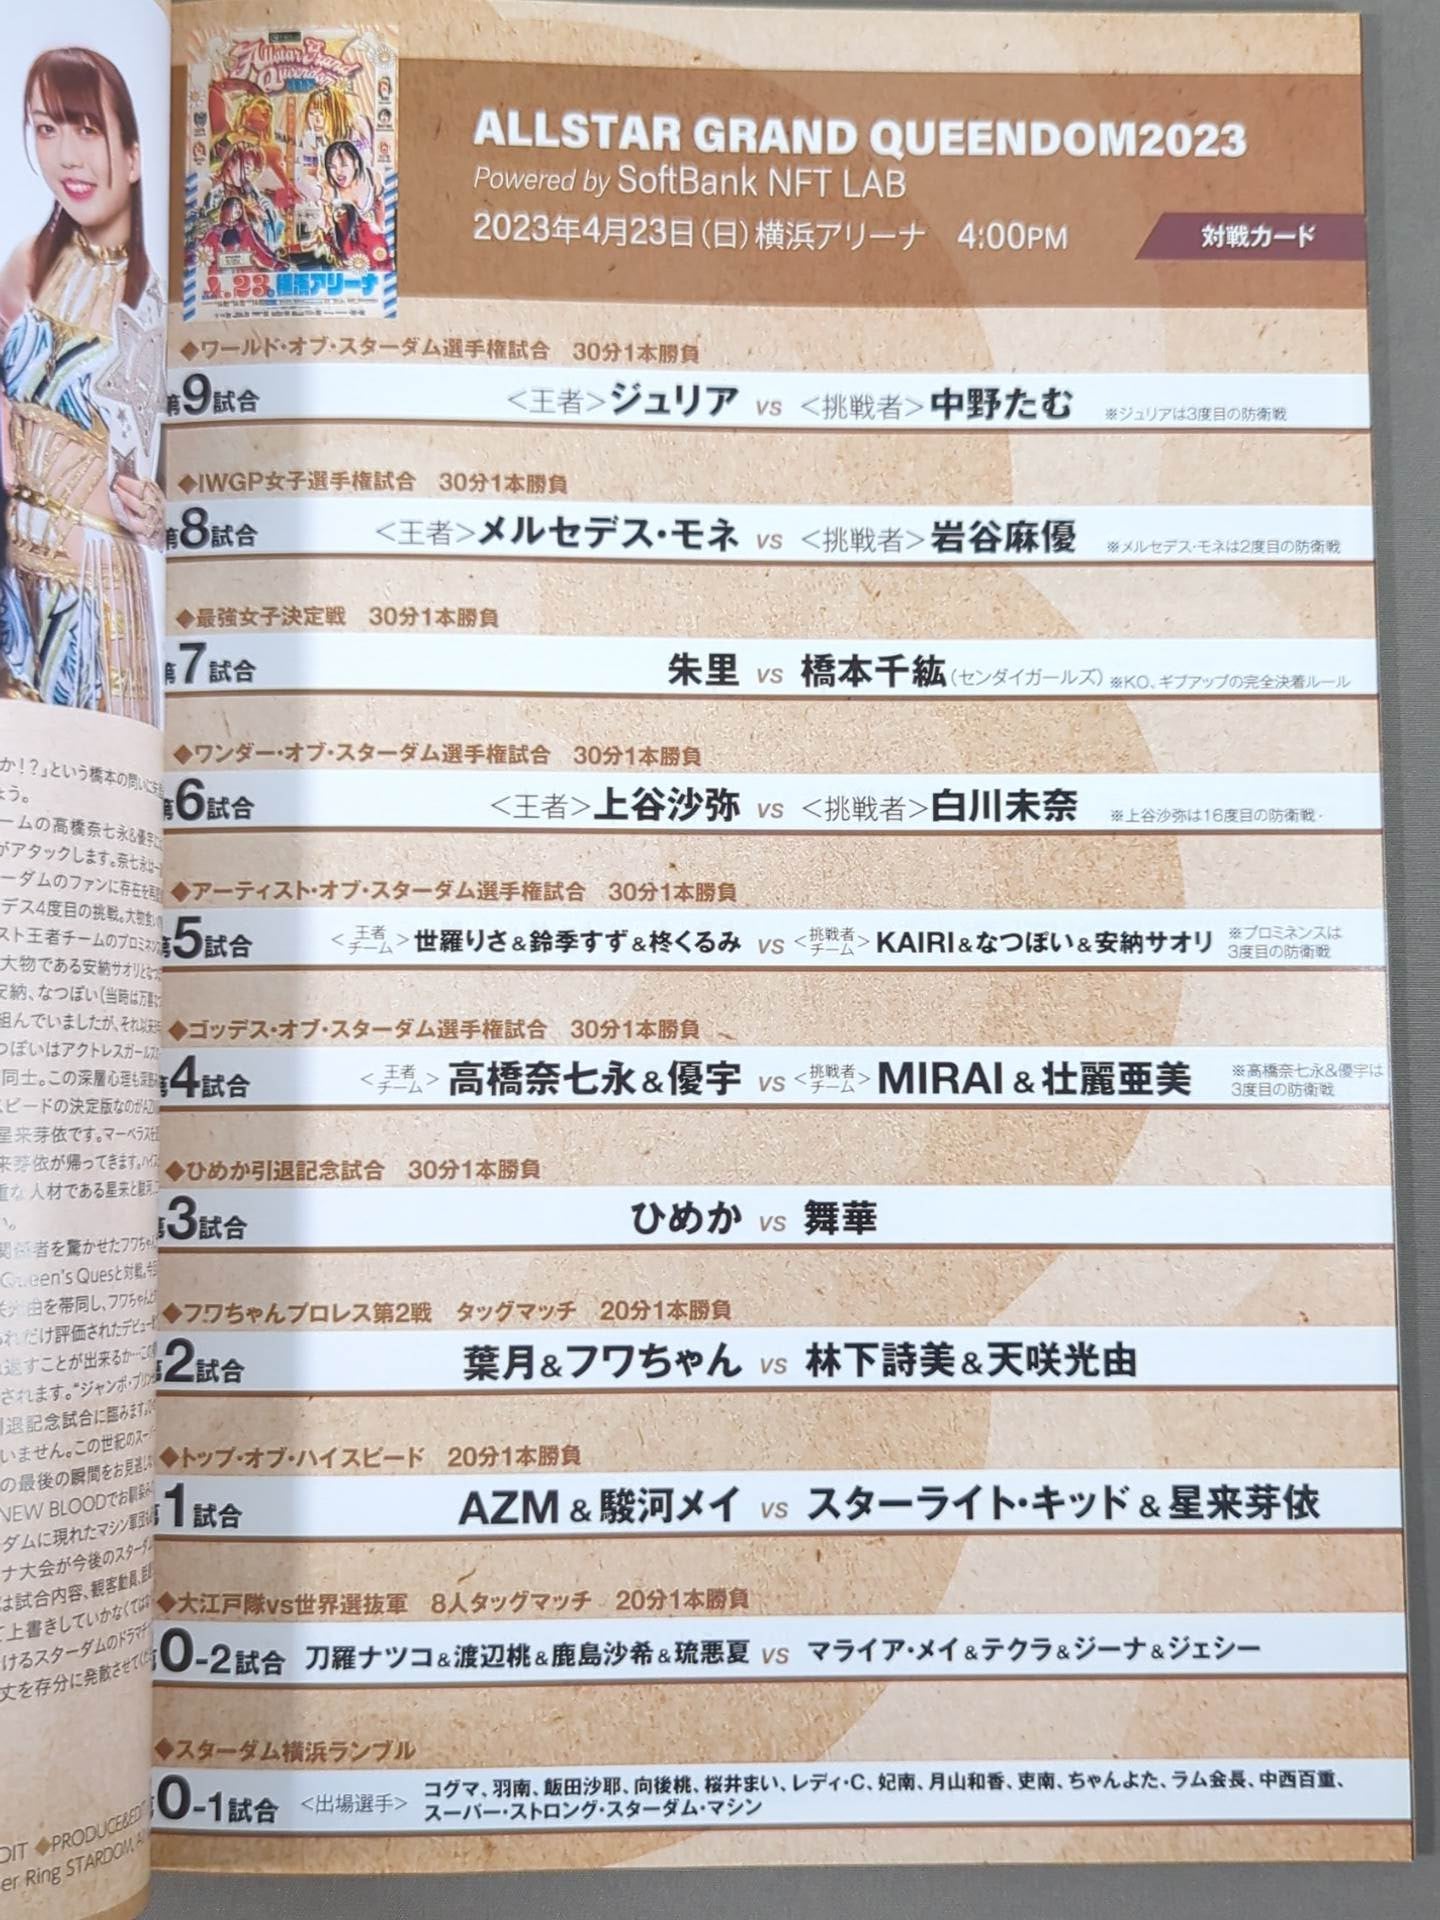 か!?」という橋本の問いに
ょう。
ームの高橋奈七永&優宇に
がアタックします。奈七永は一
ーダムのファンに存在を再
デス4度目の挑戦。大物食い
スト王者チームのプロミネンス
大物である安納サオリとなつ
安納、なつぽい(当時は万喜な
組んでいましたが、それ以来
つぽいはアクトレスガールズ
同士。この深層心理も深
スピードの決定版なのがAZM
星来芽依です。マーベラスを
来芽依が帰ってきます。ハイス
重な人材である星来と駿河
い。
関係者を驚かせたフワちゃん
Queen's Quesと対戦。今回
咲光由を帯同し、フワちゃんと
れだけ評価されたデビュー
返すことが出来るか…この
されます。"ジャンボ・プリンセ
引退記念試合に臨みます。ひ
いません。この世紀のスーパー
の最後の瞬間をお見逃しな
NEW BLOODでお馴染み
ーダムに現れたマシン軍団も
ナ大会が今後のスターダム
は試合内容、観客動員、
て上書きしていかなくてはな
けるスターダムのドラマチ
丈を存分に発散させてくだ
DIT ◆PRODUCE&EDIT
er Ring STARDOM, A
Allstar Grand Queendom
4.23.横浜アリーナ
ALLSTAR GRAND QUEENDOM2023
Powered by SoftBank NFT LAB
2023年4月23日(日)横浜アリーナ 4:00PM
対戦カード
◆ワールド・オブ・スターダム選手権試合 30分1本勝負
第9試合 <王者>ジュリア vs <挑戦者>中野たむ ※ジュリアは3度目の防衛戦
◆IWGP女子選手権試合 30分1本勝負
第8試合 <王者>メルセデス・モネ vs <挑戦者>岩谷麻優 ※メルセデス・モネは2度目の防衛戦
◆最強女子決定戦 30分1本勝負
第7試合 朱里 vs 橋本千紘(センダイガールズ) ※KO、ギブアップの完全決着ルール
◆ワンダー・オブ・スターダム選手権試合 30分1本勝負
第6試合 <王者>上谷沙弥 vs <挑戦者>白川未奈 ※上谷沙弥は16度目の防衛戦・
◆アーティスト・オブ・スターダム選手権試合 30分1本勝負
第5試合 <王者チーム>世羅りさ&鈴季すず&柊くるみ vs <挑戦者チーム>KAIRI&なつぽい&安納サオリ ※プロミネンスは3度目の防衛戦
◆ゴッデス・オブ・スターダム選手権試合 30分1本勝負
第4試合 <王者チーム>高橋奈七永&優宇 vs <挑戦者チーム>MIRAI&壮麗亜美 ※高橋奈七永&優宇は3度目の防衛戦
◆ひめか引退記念試合 30分1本勝負
第3試合 ひめか vs 舞華
◆フワちゃんプロレス第2戦 タッグマッチ 20分1本勝負
第2試合 葉月&フワちゃん vs 林下詩美&天咲光由
◆トップ・オブ・ハイスピード 20分1本勝負
第1試合 AZM&駿河メイ vs スターライト・キッド&星来芽依
◆大江戸隊vs世界選抜軍 8人タッグマッチ 20分1本勝負
第0-2試合 刀羅ナツコ&渡辺桃&鹿島沙希&琉悪夏 vs マライア・メイ&テクラ&ジーナ&ジェシー
◆スターダム横浜ランブル
第0-1試合 <出場選手> コグマ、羽南、飯田沙耶、向後桃、桜井まい、レディ・C、妃南、月山和香、吏南、ちゃんよた、ラム会長、中西百重、
スーパー・ストロング・スターダム・マシン